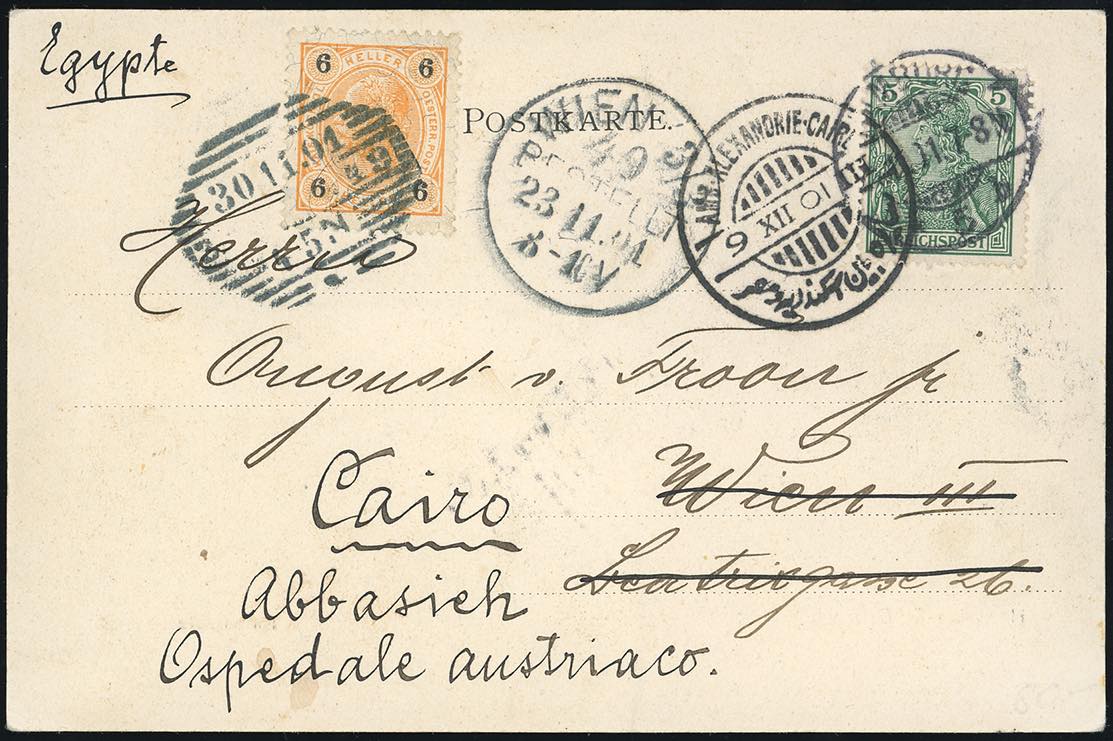 Egypte
6 HELLER 6
OESTERR. POST
6 6
30 11.01
POSTKARTE.
WIEN 3/
49
BESTELLT
23.11.01
8-10V
AMB. ALEXANDRIE-CAIRE
9 XII 01
5 5
REICHSPOST
Herrn
August v. Froon jr
Cairo
Wien III
Beatrixgasse 26.
Abbasieh
Ospedale austriaco.